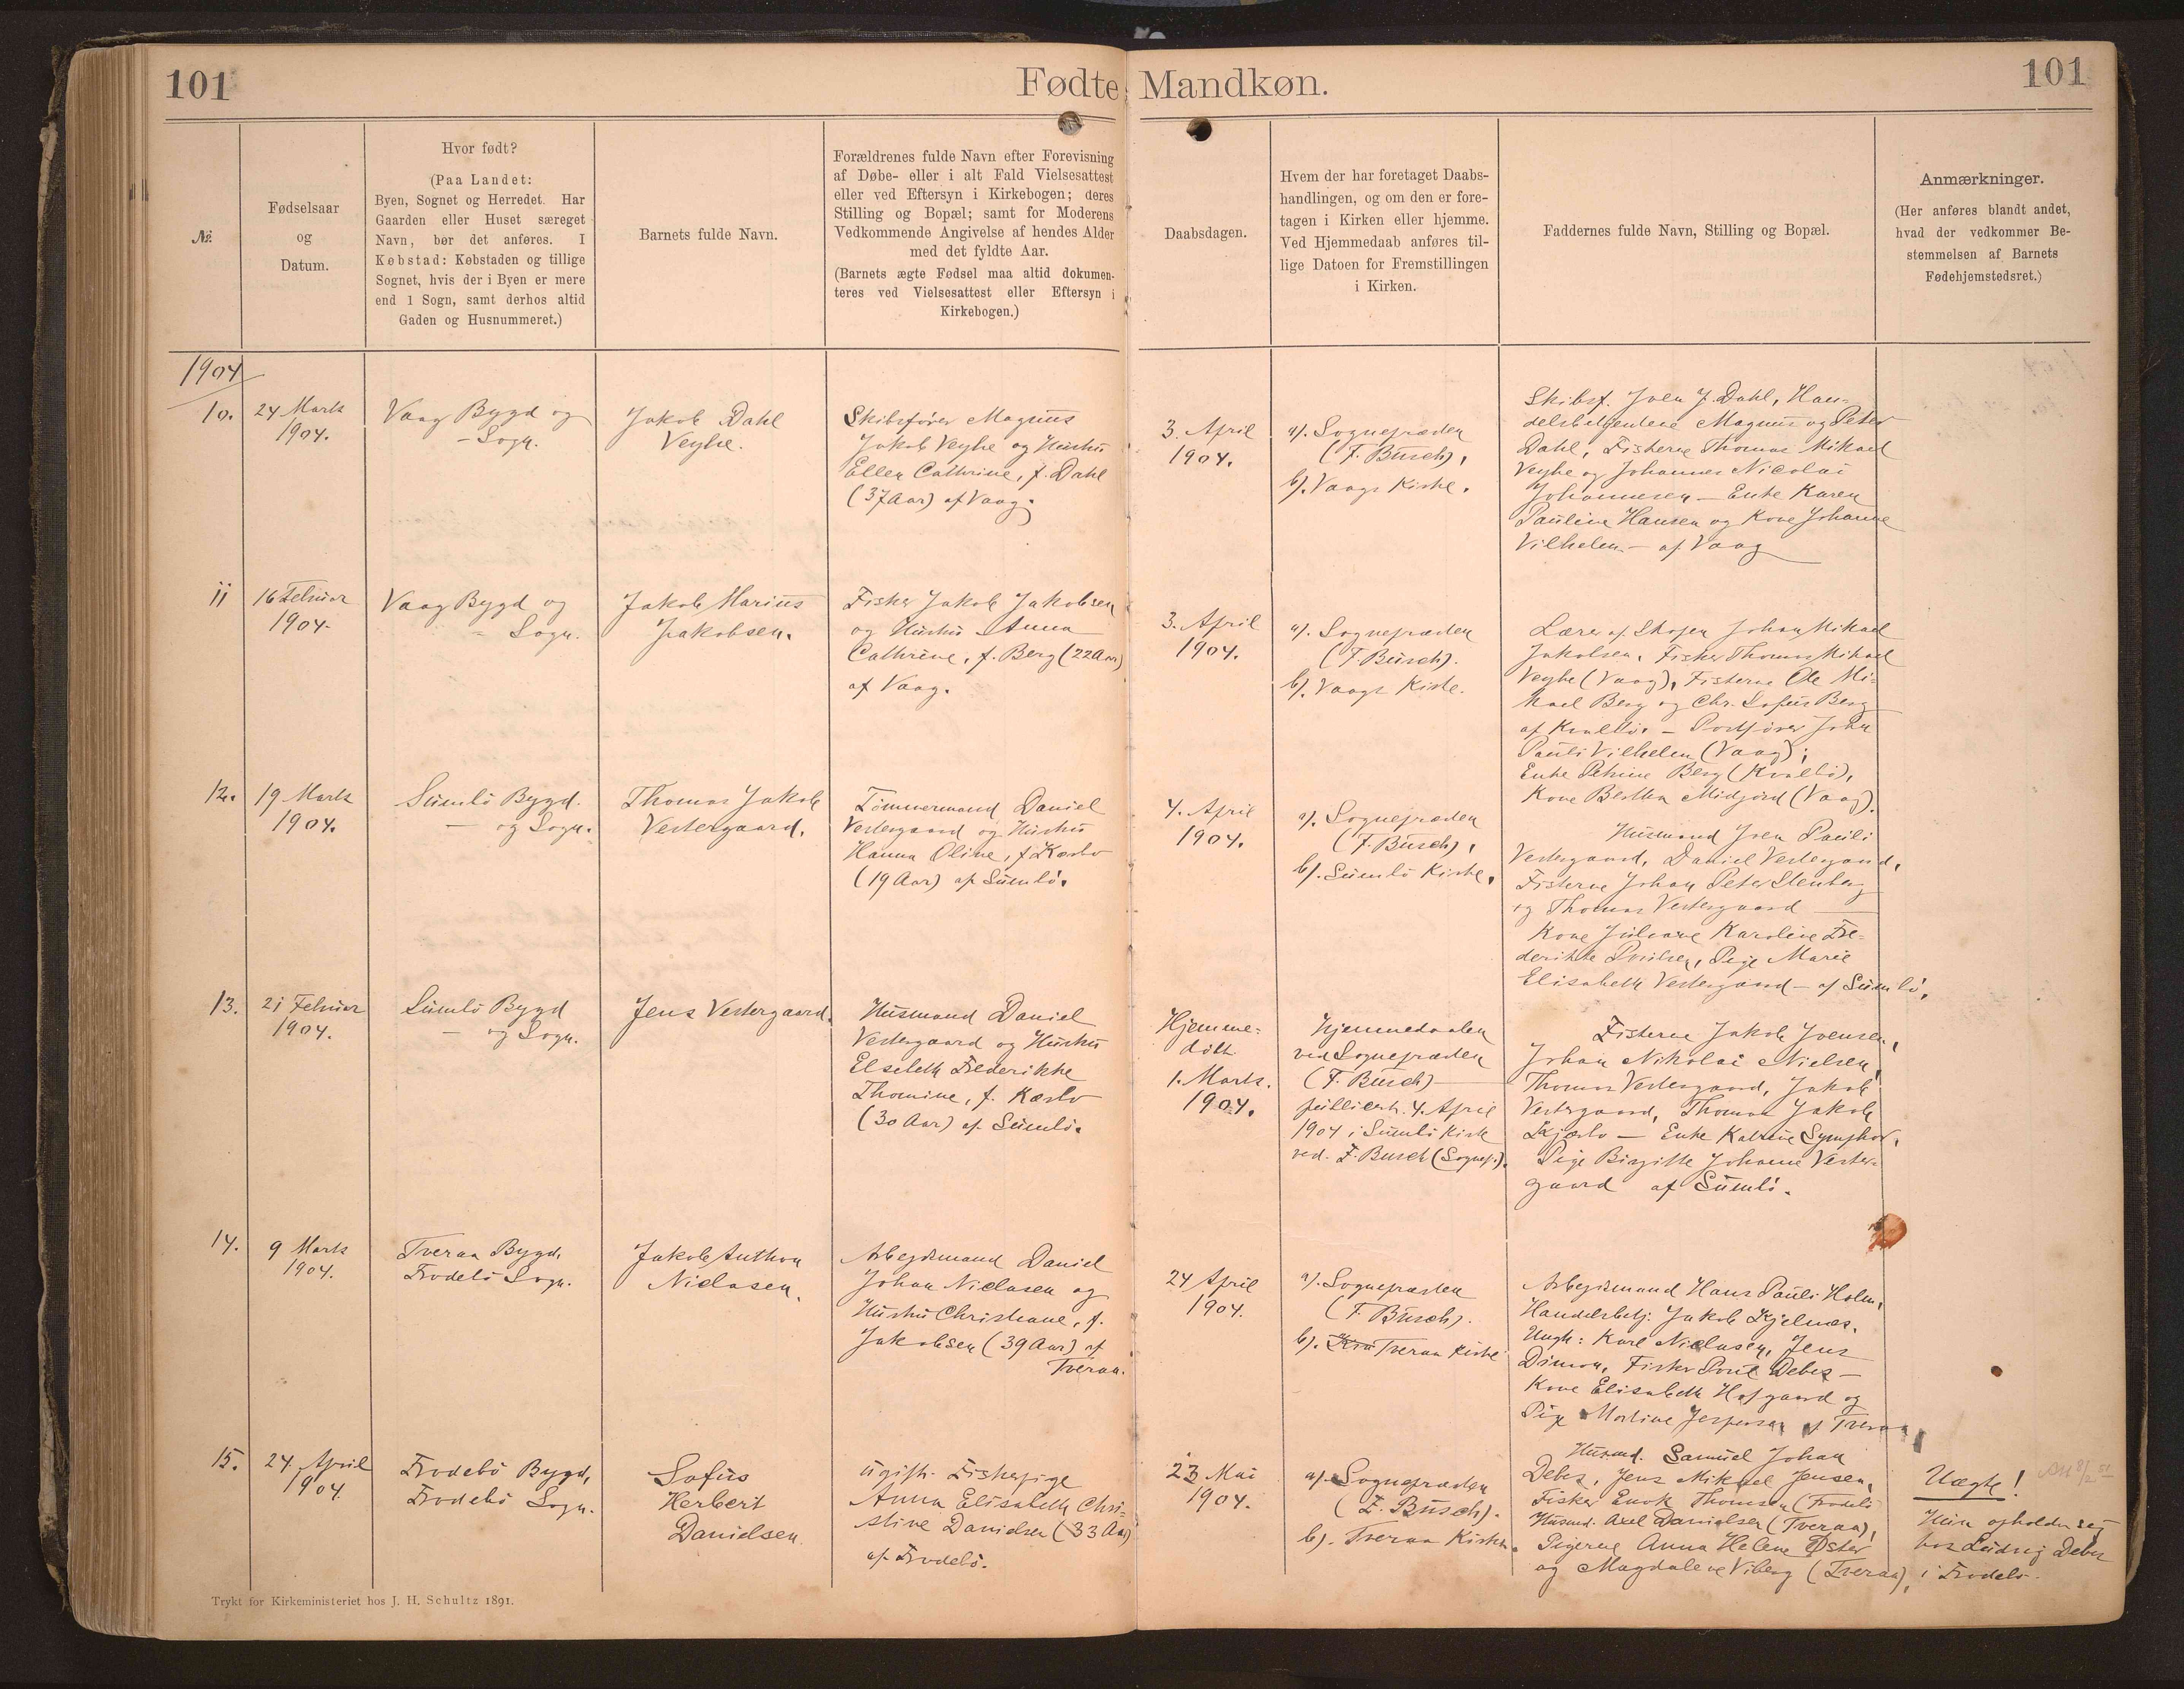 101
Fødte Mandkøn.
101
№
Fødselsaar
og
Datum.
Hvor født?
(Paa Landet:
Byen, Sognet og Herredet. Har
Gaarden eller Huset særeget
Navn, bør det anføres. I
Købstad: Købstaden og tillige
Sognet, hvis der i Byen er mere
end 1 Sogn, samt derhos altid
Gaden og Husnummeret.)
Barnets fulde Navn.
Forældrenes fulde Navn efter Forevisning
af Døbe- eller i alt Fald Vielsesattest
eller ved Eftersyn i Kirkebogen; deres
Stilling og Bopæl; samt for Moderens
Vedkommende Angivelse af hendes Alder
med det fyldte Aar.
(Barnets ægte Fødsel maa altid dokumen-
teres ved Vielsesattest eller Eftersyn i
Kirkebogen.)
Daabsdagen.
Hvem der har foretaget Daabs-
handlingen, og om den er fore-
tagen i Kirken eller hjemme.
Ved Hjemmedaab anføres til-
lige Datoen for Fremstillingen
i Kirken.
Faddernes fulde Navn, Stilling og Bopæl.
Anmærkninger.
(Her anføres blandt andet,
hvad der vedkommer Be-
stemmelsen af Barnets
Fødehjemstedsret.)
1904
10.
24 Marts
1904.
Vaag Bygd og
- Sogn.
Jakob Dahl
Veyhe.
Skibsfører Magnus
Jakob Veyhe og Hustru
Ellen Cathrine, f. Dahl
(37 Aar) af Vaag.
3. April
1904.
a). Sognepræsten
(F. Busch),
b). Vaags Kirke.
Skibsf. Joen J. Dahl, Han-
delsbetjentene Magnus og Peter
Dahl, Fiskerne Thomas Mikael
Veyhe og Johannes Nicolai
Johannesen - Enke Karen
Pauline Hansen og Kone Johanne
Vilhelm. - af Vaag
11
16 Februar
1904.
Vaag Bygd og
- Sogn.
Jakob Marius
Jakobsen.
Fisker Jakob Jakobsen
og Hustru Anna
Cathrine, f. Berg (22 Aar)
af Vaag.
3. April
1904.
a). Sognepræsten
(F. Busch).
b). Vaags Kirke.
Lærer af Skopen Johan Mikael
Jakobsen, Fisker Thomas Mikael
Veyhe (Vaag), Fiskerne Ole Mi-
kael Berg og Chr. Sofus Berg
af Kvalbø. - Postfører John
Pauli Vilhelm (Vaag);
Enke Petrine Berg (Kvalbø),
Kone Bertha Midjord (Vaag).
12.
19 Marts
1904.
Sumbø Bygd.
- og Sogn.
Thomas Jakob
Vestergaard.
Tømmermand Daniel
Vestergaard og Hustru
Hanna Oline, f. Kærbo
(19 Aar) af Sumbø.
4. April
1904.
a). Sognepræsten
(F. Busch),
b). Sumbø Kirke.
Husmand Joen Pauli
Vestergaard, Daniel Vestergaard,
Fiskerne Johan Peter Stenberg
og Thomas Vestergaard
Kone Juliane Karoline Fre-
derikke Poulsen, Pige Marie
Elisabeth Vestergaard - af Sumbø.
13.
21 Februar
1904.
Sumbø Bygd
- og Sogn.
Jens Vestergaard.
Husmand Daniel
Vestergaard og Hustru
Elsebeth Frederikke
Thomine, f. Kærbo
(30 Aar) af Sumbø.
Hjemme-
døbt
1. Marts.
1904.
Hjemmedaaben
ved Sognepræsten
(F. Busch)
publicert. 4. April
1904 i Sumbø Kirke
ved. F. Busch (Sognep.).
Fiskerne Jakob Joensen,
Johan Nikolai Nielsen,
Thomas Vestergaard, Jakob
Vestergaard, Thomas Jakob
Kjærbo - Enke Katrine Symphor.
Pige Birgitte Johanne Vester-
gaard af Sumbø.
14.
9 Marts
1904.
Tveraa Bygd,
Frodebø Sogn.
Jakob Anthon
Niclasen.
Arbejdsmand Daniel
Johan Niclasen og
Hustru Christiane, f.
Jakobsen (39 Aar) af
Tveraa.
24 April
1904.
a). Sognepræsten
(F. Busch).
b). Tveraa Kirke
Arbejdsmand Hans Pauli Holm,
Handelsbetj. Jakob Kjelnæs.
Ungk: Karl Niclasen, Jens
Dimon, Fisker Poul Debes -
Kone Elisabeth Hofgaard og
Pige Martine Jespersen af Tveraa
15.
24 April
1904.
Frodebø Bygd,
Frodebø Sogn.
Sofus
Herbert
Danielsen.
ugift. Fiskerpige
Anna Elisabeth Chri-
stine Danielsen (33 Aar)
af Frodebø.
23 Mai
1904.
a). Sognepræsten
(F. Busch).
b). Tveraa Kirke.
Husmd. Samuel Johan
Debes, Jens Mikael Jensen,
Fisker Enok Thomsen (Frodebø
Husmd. Axel Danielsen (Tveraa),
Pigerne Anna Helene Øster
og Magdalene Viberg (Tveraa),
Uægte!
Hun opholder sig
hos Ludvig Debes
i Frodebø.
Trykt for Kirkeministeriet hos J. H. Schultz 1891.